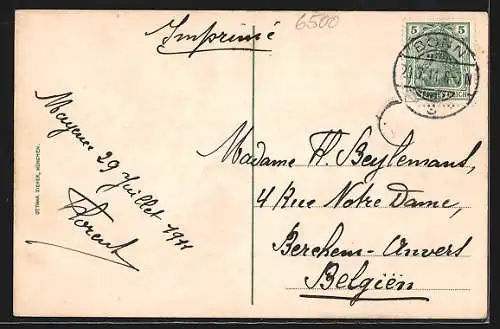 Imprimé
6500
5 5
BONN
REICH
Mayence 29 Juillet 1911
Florent
OTTMAR ZIEHER, MÜNCHEN.
Madame F. Beylemans,
4 Rue Notre Dame,
Berchem-Anvers
Belgiën